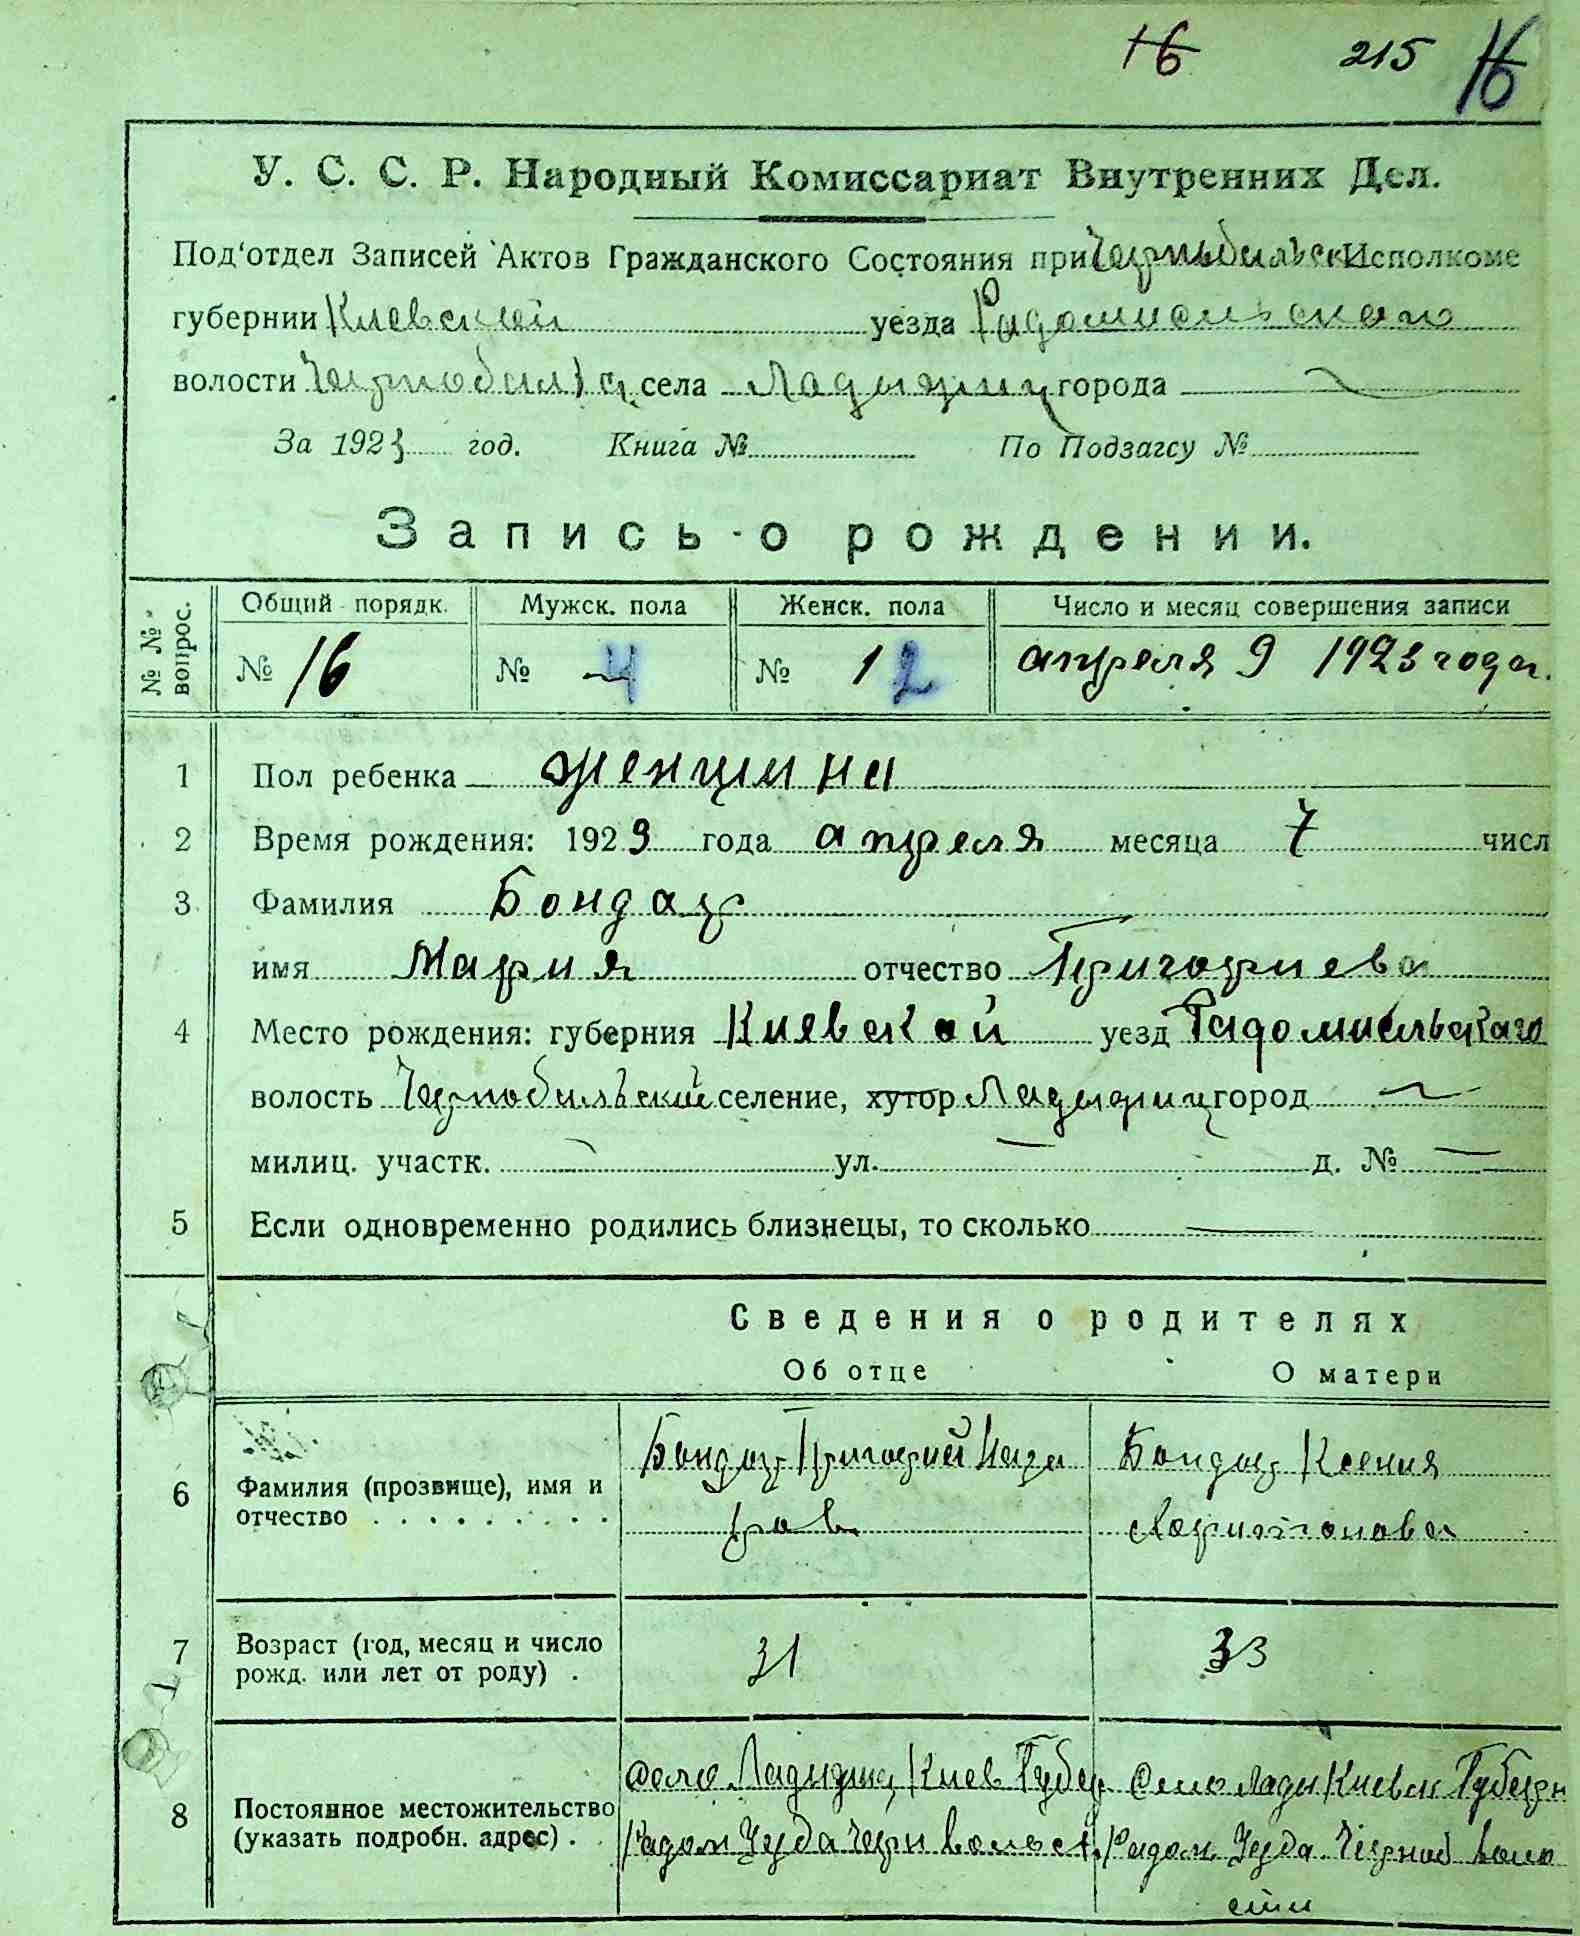 16 215 16
У. С. С. Р. Народный Комиссариат Внутренних Дел.
Под'отдел Записей Актов Гражданского Состояния при Чернобильск Исполкоме
губернии Киевской уезда Радомисльского
волости Чернобильс села Ладыжич города
За 1923 год. Книга № По Подзагсу №
Запись о рождении.
№ № вопрос. Общий порядк. Мужск. пола Женск. пола Число и месяц совершения записи
№ 16 № 4 № 12 апреля 9 1923 года.
1 Пол ребенка женщина
2 Время рождения: 1923 года апреля месяца 7 числ
3 Фамилия Бондар
имя Мария отчество Григориева
4 Место рождения: губерния Киевской уезд Радомисльскаго
волость Чернобильский селение, хутор Ладыжич город
милиц. участк. ул. д. №
5 Если одновременно родились близнецы, то сколько
Сведения о родителях
Об отце О матери
6 Фамилия (прозвище), имя и отчество
Бондар Григорий Наза
ров
Бондар Ксения
Харитонова
7 Возраст (год, месяц и число рожд. или лет от роду) . 31 33
8 Постоянное местожительство (указать подробн. адрес) .
Село Ладыжич Киев Губер
Радом Уезда Черн волост
Село Лады Киевск Губерн
Радом Уезда Черноб воло
сти